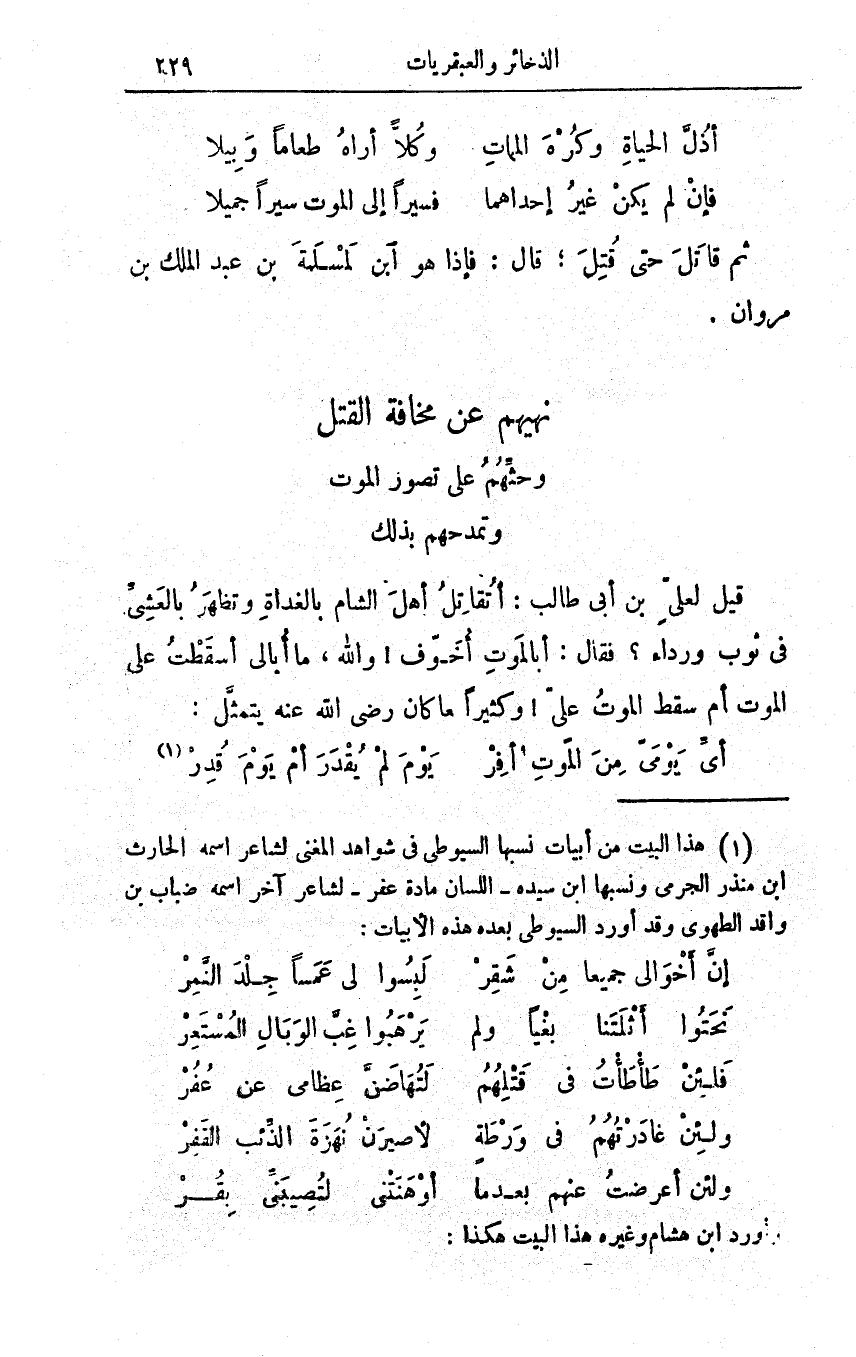 الذخائر والعبقريات ٢٢٩
أذُلَّ الحياةِ وكُرْهَ المماتِ وكُلاًّ أراهُ طعاماً وَبيلا
فإنْ لم يكنْ غيرُ إحداهما فسيراً إلى الموت سيراً جميلا
ثم قاتَلَ حتى قُتِلَ ؛ قال : فإذا هو ٱبن لمَسْلَمةَ بن عبد الملك بن
مروان .
نهيهم عن مخافة القتل
وحثِّهُمُ على تصوز الموت
وتمدحهم بذلك
قيل لعلىّ بن أبى طالب : أتُقاتِلُ أهلَ الشام بالغداةِ وتظهَرُ بالعَشِىِّ
فى ثوب ورداء ؟ فقال : أبالمَوتِ أُخَـوّف ! والله ، ما أُبالى أسقَطْتُ على
الموت أم سقط الموتُ علىّ ! وكثيراً ما كان رضى الله عنه يتمثَّل :
أىَّ يَوْمَىَّ مِنَ المَوتِ أفِرْ يَوْمَ لمْ يُقْدَرَ أمْ يَوْمَ قُدِرْ (١)
(١) هذا البيت من أبيات نسبها السيوطى فى شواهد المغنى لشاعر اسمه الحارث
ابن منذر الجرمى ونسبها ابن سيده ـ اللسان مادة عفر ـ لشاعر آخر اسمه ضباب بن
واقد الطهوى وقد أورد السيوطى بعده هذه الأبيات :
إنَّ أَخْوَالى جميعا مِنْ شَقِرْ لَبِسُوا لى عَمَساً جِـلْدَ النَّمِرْ
نَحَتُوا أَثْلَتَنا بغْياً ولم يَرْهَبُوا غِبَّ الوَبَالِ المُسْتَعِرْ
فَلـئِنْ طَأْطَأْتُ فى قَتْلِهُمُ لَتُهَاضَنَّ عِظامى عن عُفُرْ
ولـئِنْ غادَرْتُهُمُ فى وَرْطَةٍ لأصيرَنْ نُهَزَةَ الذِّئب القَفِرْ
ولئن أعرضتُ عنهم بعـدما أوْهَنَتْنى لتُصِيبَنِّى بِقُـــرْ
وأورد ابن هشام وغيره هذا البيت هكذا :